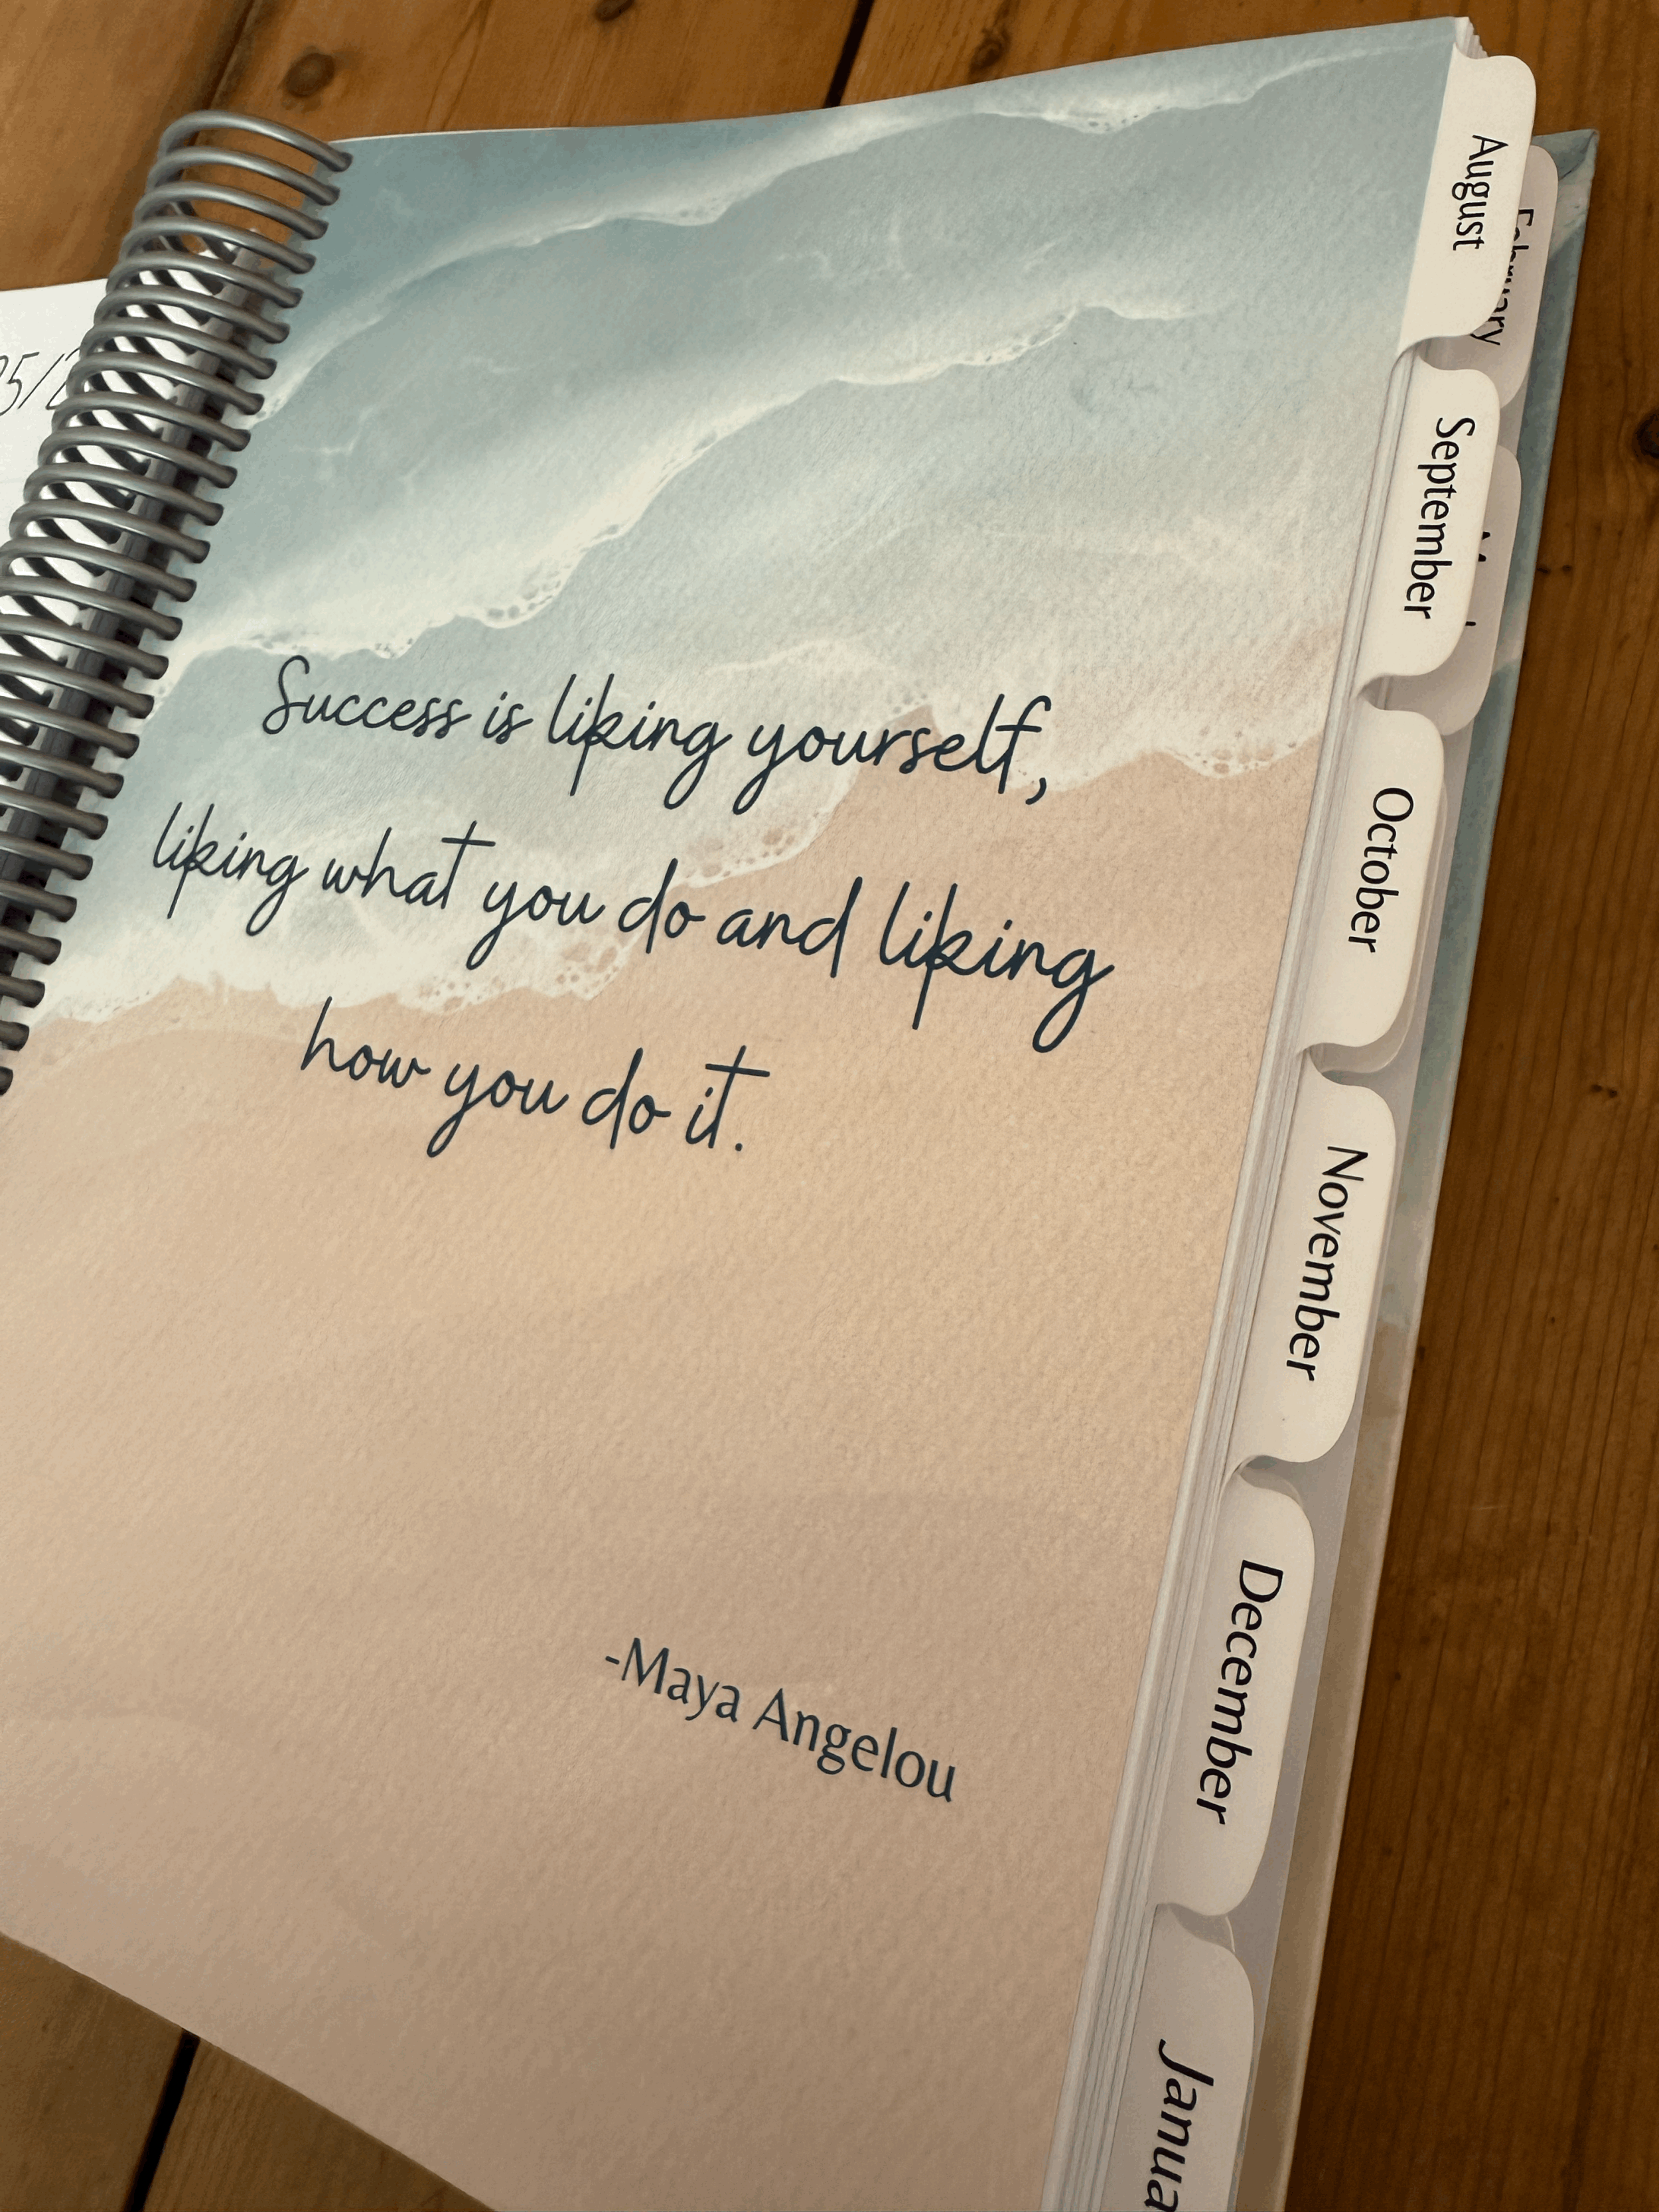 Success is liking yourself,
liking what you do and liking
how you do it.
-Maya Angelou
August
September
October
November
December
February